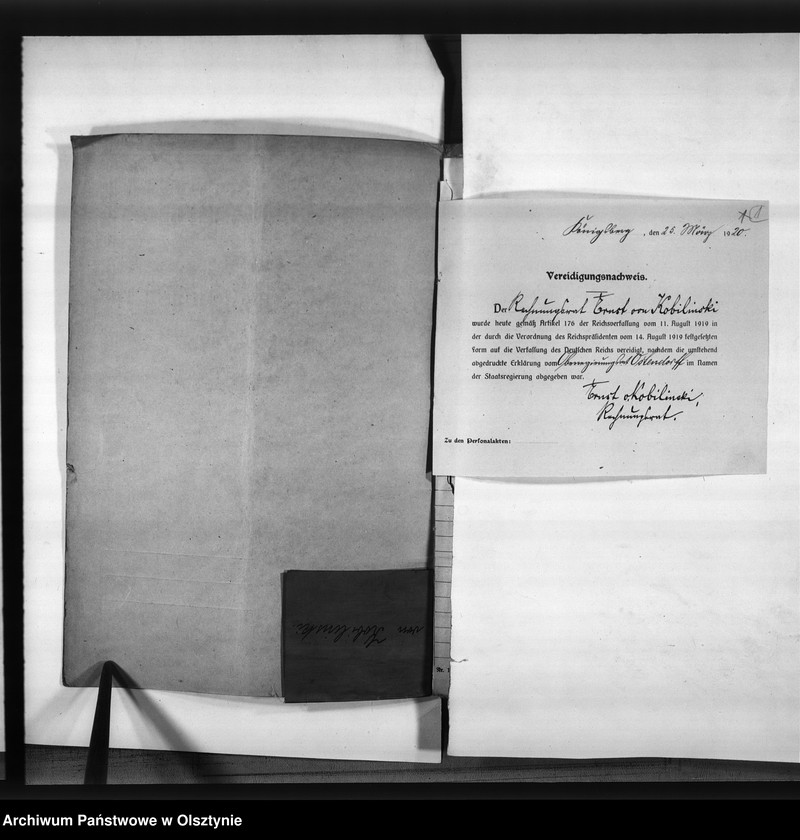 von Kobilinski
1
Königsberg, den 25. März 1920.
Vereidigungsnachweis.
Der Rechnungsrat Ernst von Kobilinski
wurde heute gemäß Artikel 176 der Reichsverfassung vom 11. August 1919 in
der durch die Verordnung des Reichspräsidenten vom 14. August 1919 festgesetzten
Form auf die Verfassung des Deutschen Reichs vereidigt, nachdem die umstehend
abgedruckte Erklärung vom Oberregierungsrat im Namen
der Staatsregierung abgegeben war.
Ernst vKobilinski,
Rechnungsrat.
Zu den Personalakten:
Nr.
Archiwum Państwowe w Olsztynie